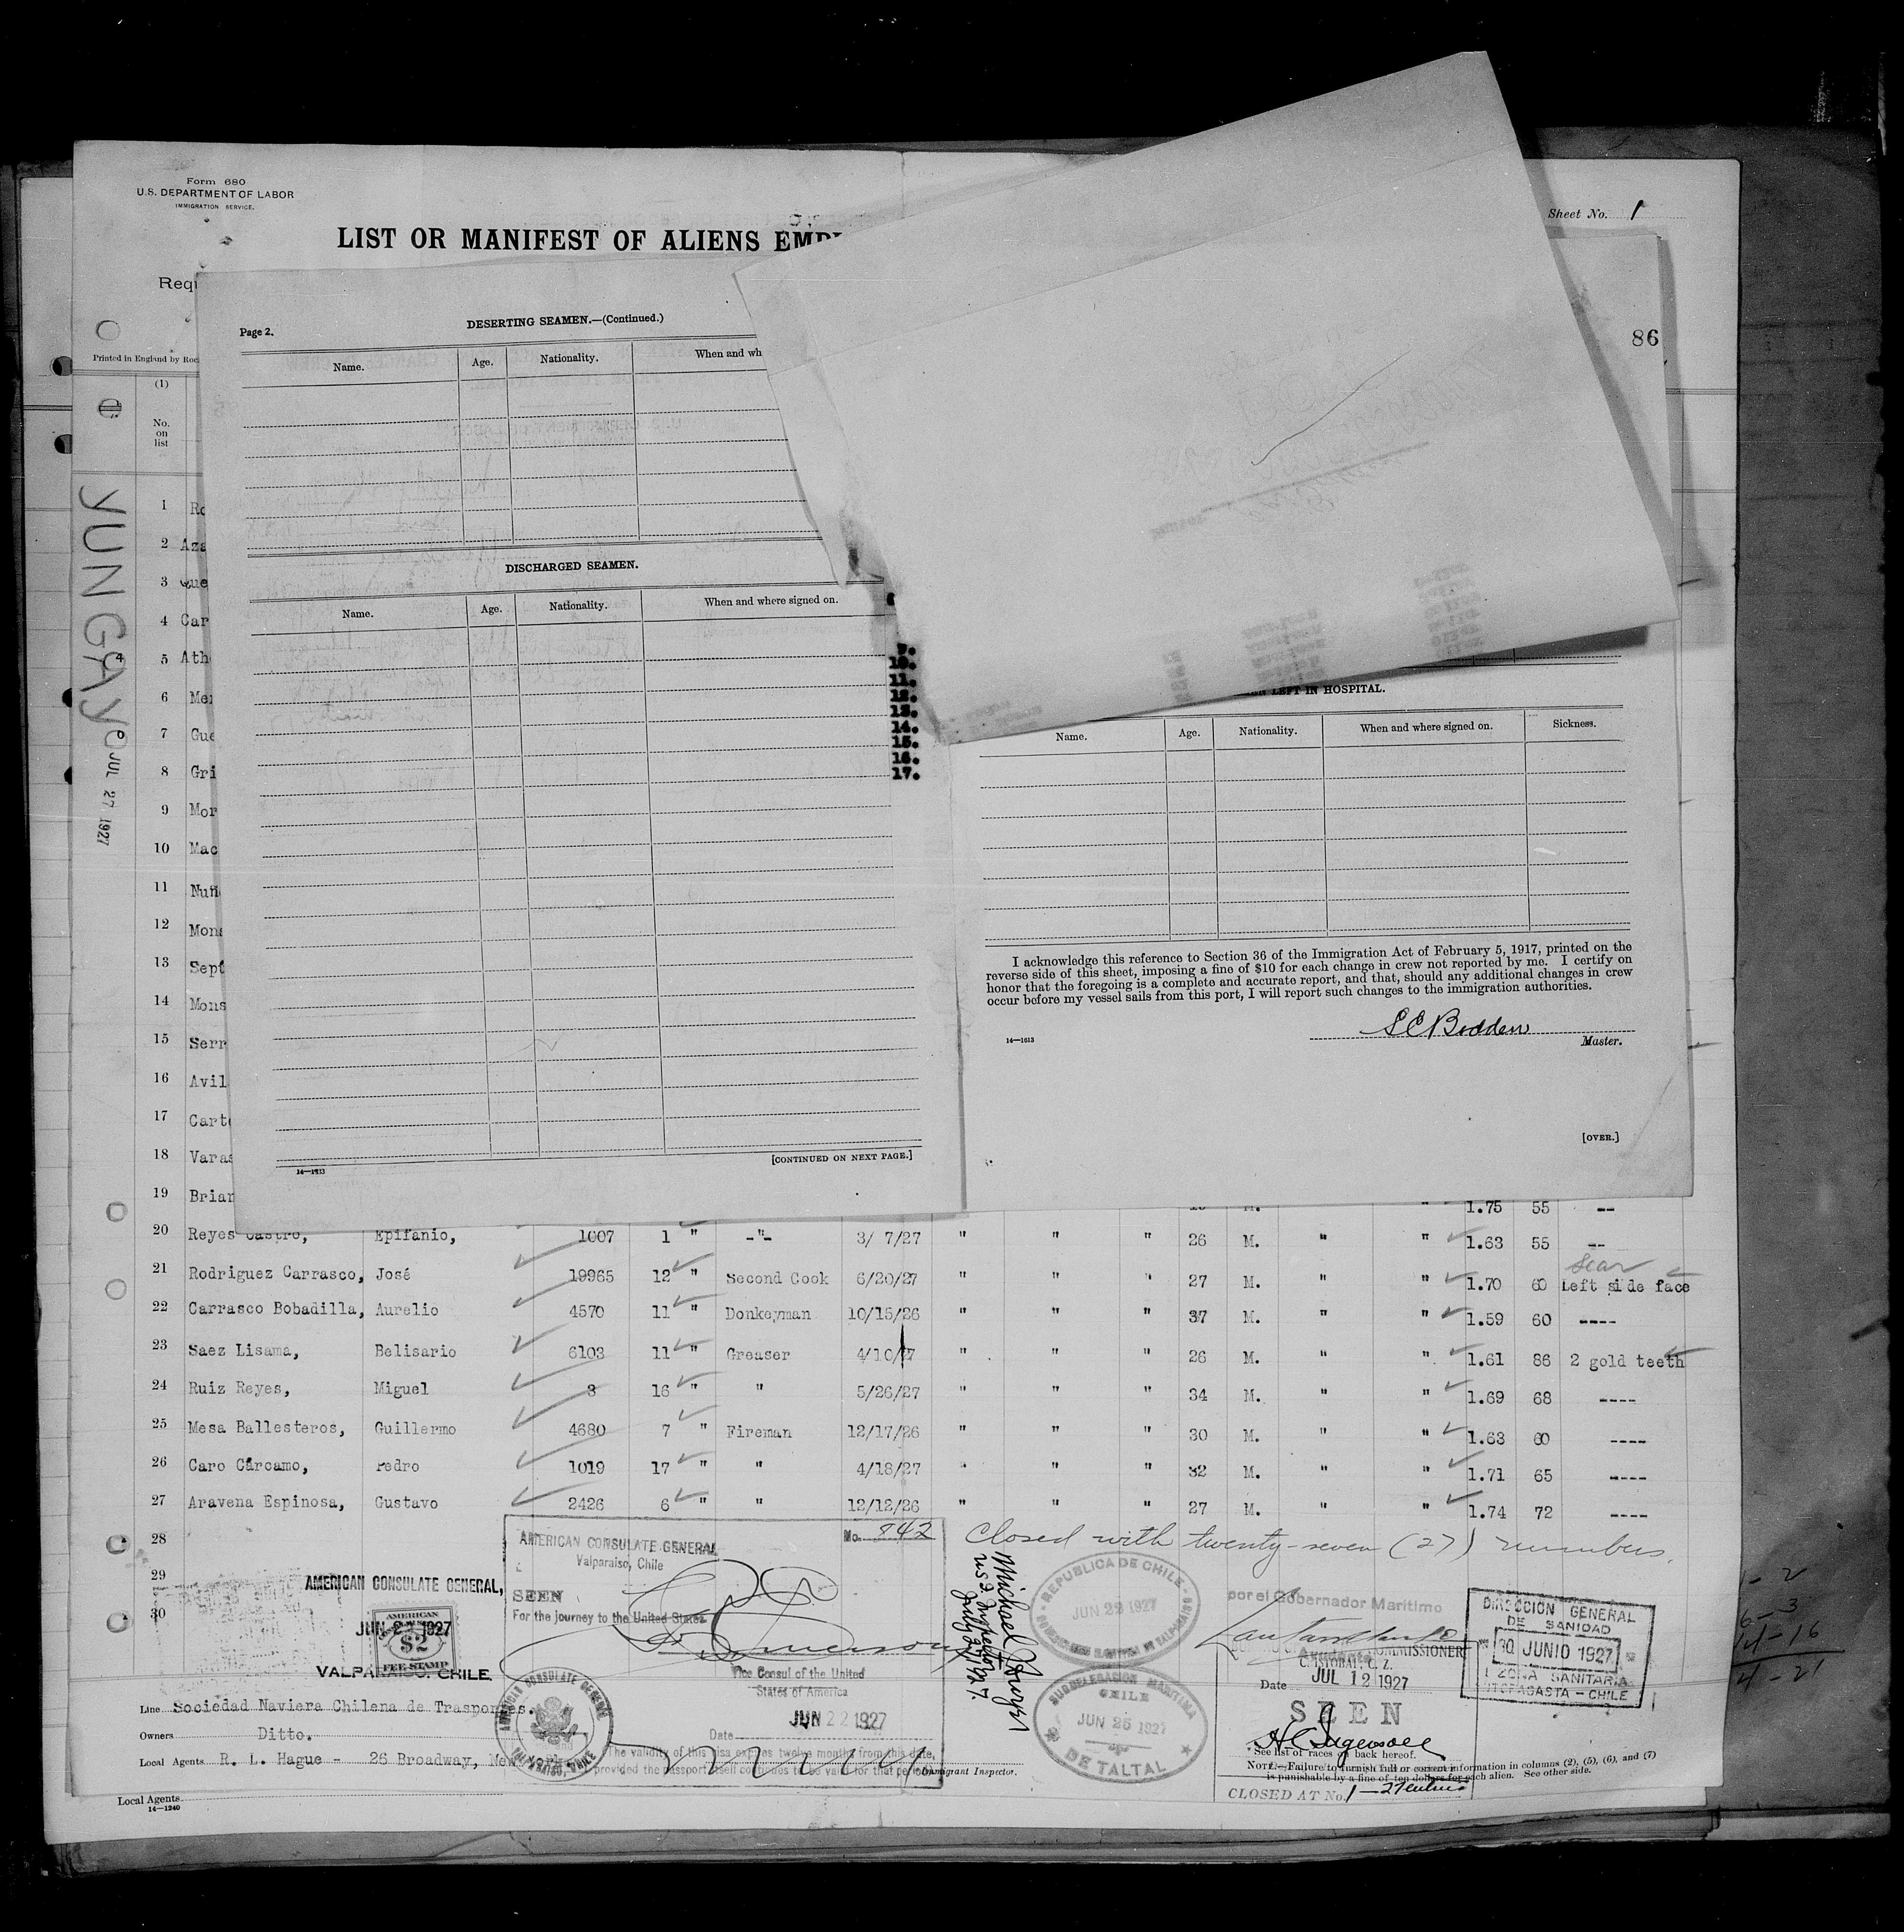 Form 680
U.S. DEPARTMENT OF LABOR
IMMIGRATION SERVICE.
Sheet No. 1
LIST OR MANIFEST OF ALIENS
86
Printed in England by
(1)
No. on list
YUNGAY
JUL 27 1927
Page 2.
DESERTING SEAMEN.—(Continued.)
Name. Age. Nationality. When and wh
DISCHARGED SEAMEN.
Name. Age. Nationality. When and where signed on.
9.
10.
11.
12.
13.
14.
15.
16.
17.
14—1613
[CONTINUED ON NEXT PAGE.]
LEFT IN HOSPITAL.
Name. Age. Nationality. When and where signed on. Sickness.
I acknowledge this reference to Section 36 of the Immigration Act of February 5, 1917, printed on the
reverse side of this sheet, imposing a fine of $10 for each change in crew not reported by me. I certify on
honor that the foregoing is a complete and accurate report, and that, should any additional changes in crew
occur before my vessel sails from this port, I will report such changes to the immigration authorities.
S C Bodden
14—1613
Master.
[OVER.]
1 Ro
2 Aza
3 Que
4 Car
5 Ath
6 Mer
7 Gue
8 Gri
9 Mor
10 Mac
11 Nuñ
12 Mons
13 Sept
14 Mons
15 Serr
16 Avil
17 Carte
18 Varas
19 Brian M. " 1.75 55 --
20 Reyes Castro, Epifanio, 1007 1 " -"- 3/ 7/27 " " " 26 M. " " 1.63 55 --
21 Rodriguez Carrasco, José 19965 12 " Second Cook 6/20/27 " " " 27 M. " " 1.70 60 Scar Left side face
22 Carrasco Bobadilla, Aurelio 4570 11 " Donkeyman 10/15/26 " " " 37 M. " " 1.59 60 ----
23 Saez Lisama, Belisario 6103 11 " Greaser 4/10/27 " " " 26 M. " " 1.61 86 2 gold teeth
24 Ruiz Reyes, Miguel 3 16 " " 5/26/27 " " " 34 M. " " 1.69 68 ----
25 Mesa Ballesteros, Guillermo 4680 7 " Fireman 12/17/26 " " " 30 M. " " 1.63 60 ----
26 Caro Cárcamo, Pedro 1019 17 " " 4/18/27 " " " 32 M. " " 1.71 65 ----
27 Aravena Espinosa, Gustavo 2426 6 " " 12/12/26 " " " 27 M. " " 1.74 72 ----
28
29
30
Closed with twenty-seven (27) numbers.
AMERICAN CONSULATE GENERAL
Valparaiso, Chile
No. 842
SEEN
For the journey to the United States
Vice Consul of the United
States of America
JUN 22 1927
Date
The validity of this visa expires twelve months from this date,
provided the passport itself continues to be valid for that period.
AMERICAN CONSULATE GENERAL,
JUN 22 1927
VALPARAISO, CHILE.
AMERICAN
$2
FEE STAMP
AMERICAN CONSULATE GENERAL
VALPARAISO, CHILE
Michael
July 27, 1927.
REPUBLICA DE CHILE
JUN 22 1927
SUBDELEGACION MARITIMA
CHILE
JUN 25 1927
DE TALTAL
por el Gobernador Maritimo
COMMISSIONER
CRISTOBAL, C. Z.
Date JUL 12 1927
SEEN
DIRECCION GENERAL
DE SANIDAD
30 JUNIO 1927
ZONA SANITARIA
ANTOFAGASTA - CHILE
Line Sociedad Naviera Chilena de Trasportes.
Owners Ditto.
Local Agents R. L. Hague - 26 Broadway, New York
Immigrant Inspector.
See list of races on back hereof.
NOTE.—Failure to furnish full or correct information in columns (2), (5), (6), and (7)
is punishable by a fine of ten dollars for each alien. See other side.
CLOSED AT No. 1-27
Local Agents
14—1240